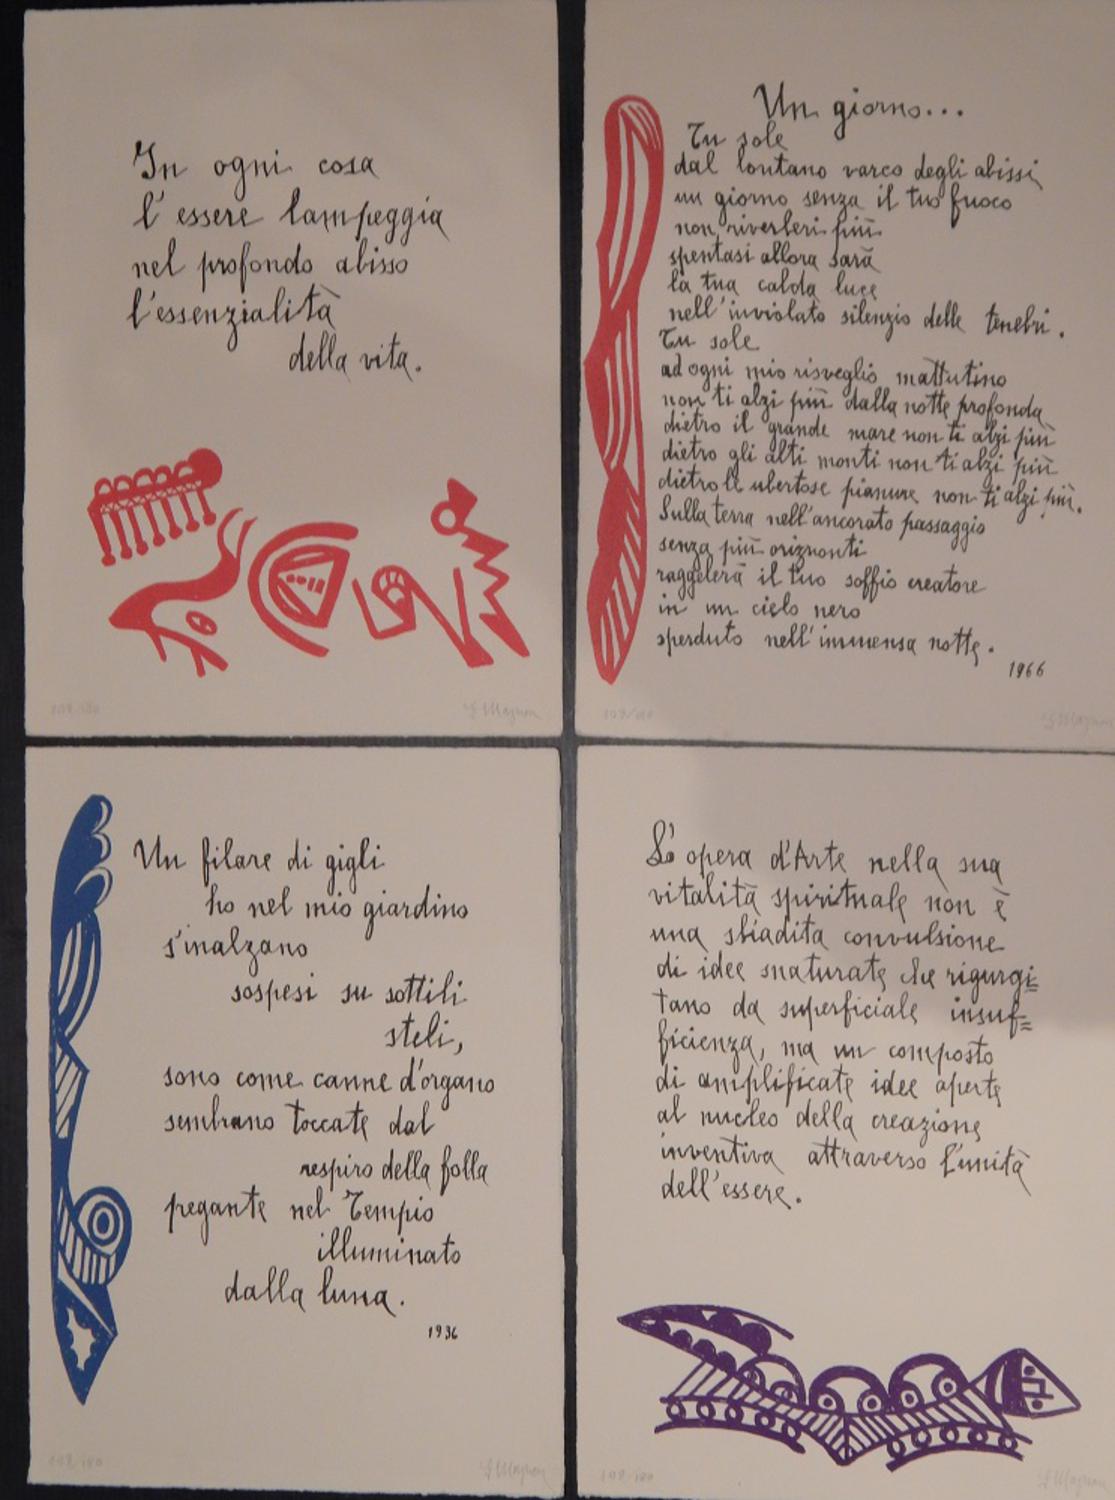 In ogni cosa
l'essere lampeggia
nel profondo abisso
l'essenzialità
della vita.
Un giorno...
Tu sole
dal lontano varco degli abissi
un giorno senza il tuo fuoco
non riverberi più
spentasi allora sarà
la tua calda luce
nell'inviolato silenzio delle tenebri.
Tu sole
ad ogni mio risveglio mattutino
non ti alzi più dalla notte profonda
dietro il grande mare non ti alzi più
dietro gli alti monti non ti alzi più
dietro le ubertose pianure non ti alzi più.
Sulla terra nell'ancorato passaggio
senza più orizzonti
raggelerà il tuo soffio creatore
in un cielo nero
sperduto nell'immensa notte.
1966
109/180
109/180
Un filare di gigli
ho nel mio giardino
s'inalzano
sospesi su sottili
steli,
sono come canne d'organo
sembrano toccate dal
respiro della folla
pregante nel Tempio
illuminato
dalla luna.
1936
L'opera d'Arte nella sua
vitalità spirituale non è
una sbiadita convulsione
di idee snaturate che rigurgi=
tano da superficiale insuf=
ficienza, ma un composto
di amplificate idee aperte
al nucleo della creazione
inventiva attraverso l'unità
dell'essere.
109/180
109/180